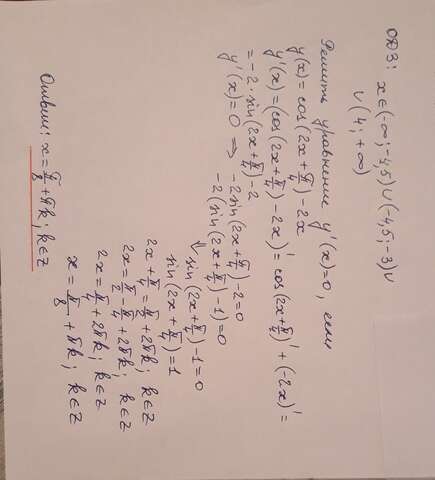 ОДЗ: x∈(-∞; -4,5)∪(-4,5; -3)∪
∪(4; +∞)
Решить уравнение y'(x)=0, если
y(x) = cos(2x+π/4) - 2x
y'(x) = (cos(2x+π/4) - 2x)' = cos(2x+π/4)' + (-2x)' =
= -2·sin(2x+π/4) - 2
y'(x)=0 ⇒ -2sin(2x+π/4) - 2 = 0
-2(sin(2x+π/4) - 1) = 0
⇓ sin(2x+π/4) - 1 = 0
sin(2x+π/4) = 1
2x+π/4 = π/2 + 2πk; k∈Z
2x = π/2 - π/4 + 2πk; k∈Z
2x = π/4 + 2πk; k∈Z
x = π/8 + πk; k∈Z
Ответ: x = π/8 + πk; k∈Z